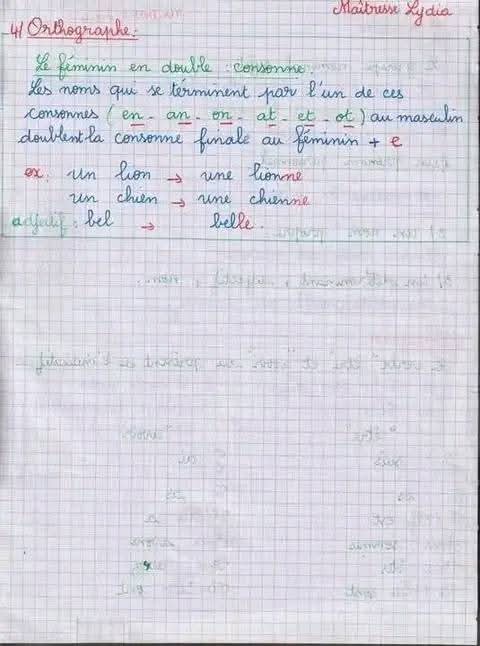 Maîtresse Lydia
4/ Orthographe:
Le féminin en double consonne:
Les noms qui se terminent par l'un de ces
consonnes (en - an - on - at - et - ot) au masculin
doublent la consonne finale au féminin + e
ex: un lion → une lionne
un chien → une chienne
adjectif: bel → belle.